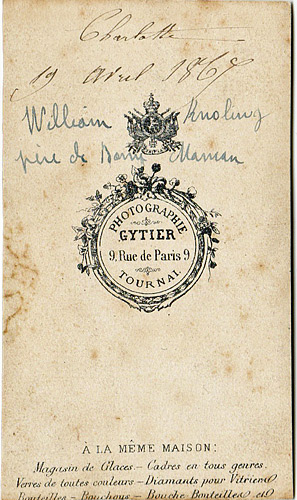 Charlotte
19 Avril 1867
William Knoling
père de Bony Maman
PHOTOGRAPHIE
GYTIER
9. Rue de Paris 9
TOURNAI
À LA MÊME MAISON:
Magasin de Glaces – Cadres en tous genres.
Verres de toutes couleurs – Diamants pour Vitriers
Bouteilles – Bouchons – Bouche-Bouteilles et